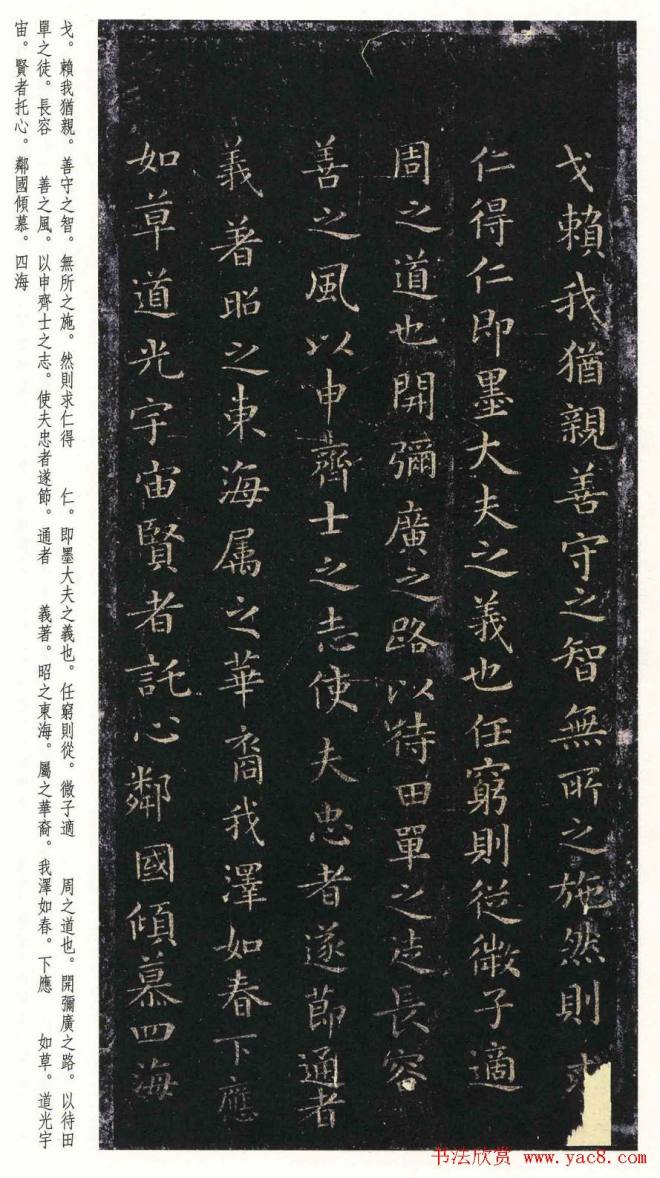 戈賴我猶親善守之智無所之施然則求
仁得仁即墨大夫之義也任窮則從微子適
周之道也開彌廣之路以待田單之徒長容
善之風以申齊士之志使夫忠者遂節通者
義著昭之東海属之華裔我澤如春下應
如草道光宇宙賢者託心鄰國傾慕四海
戈。賴我猶親。善守之智。無所之施。然則求仁得　仁。即墨大夫之義也。任窮則從。微子適　周之道也。開彌廣之路。以待田
單之徒。長容　善之風。以申齊士之志。使夫忠者遂節。通者　義著。昭之東海。屬之華裔。我澤如春。下應　如草。道光宇
宙。賢者托心。鄰國傾慕。四海
书法欣赏 www.yac8.com